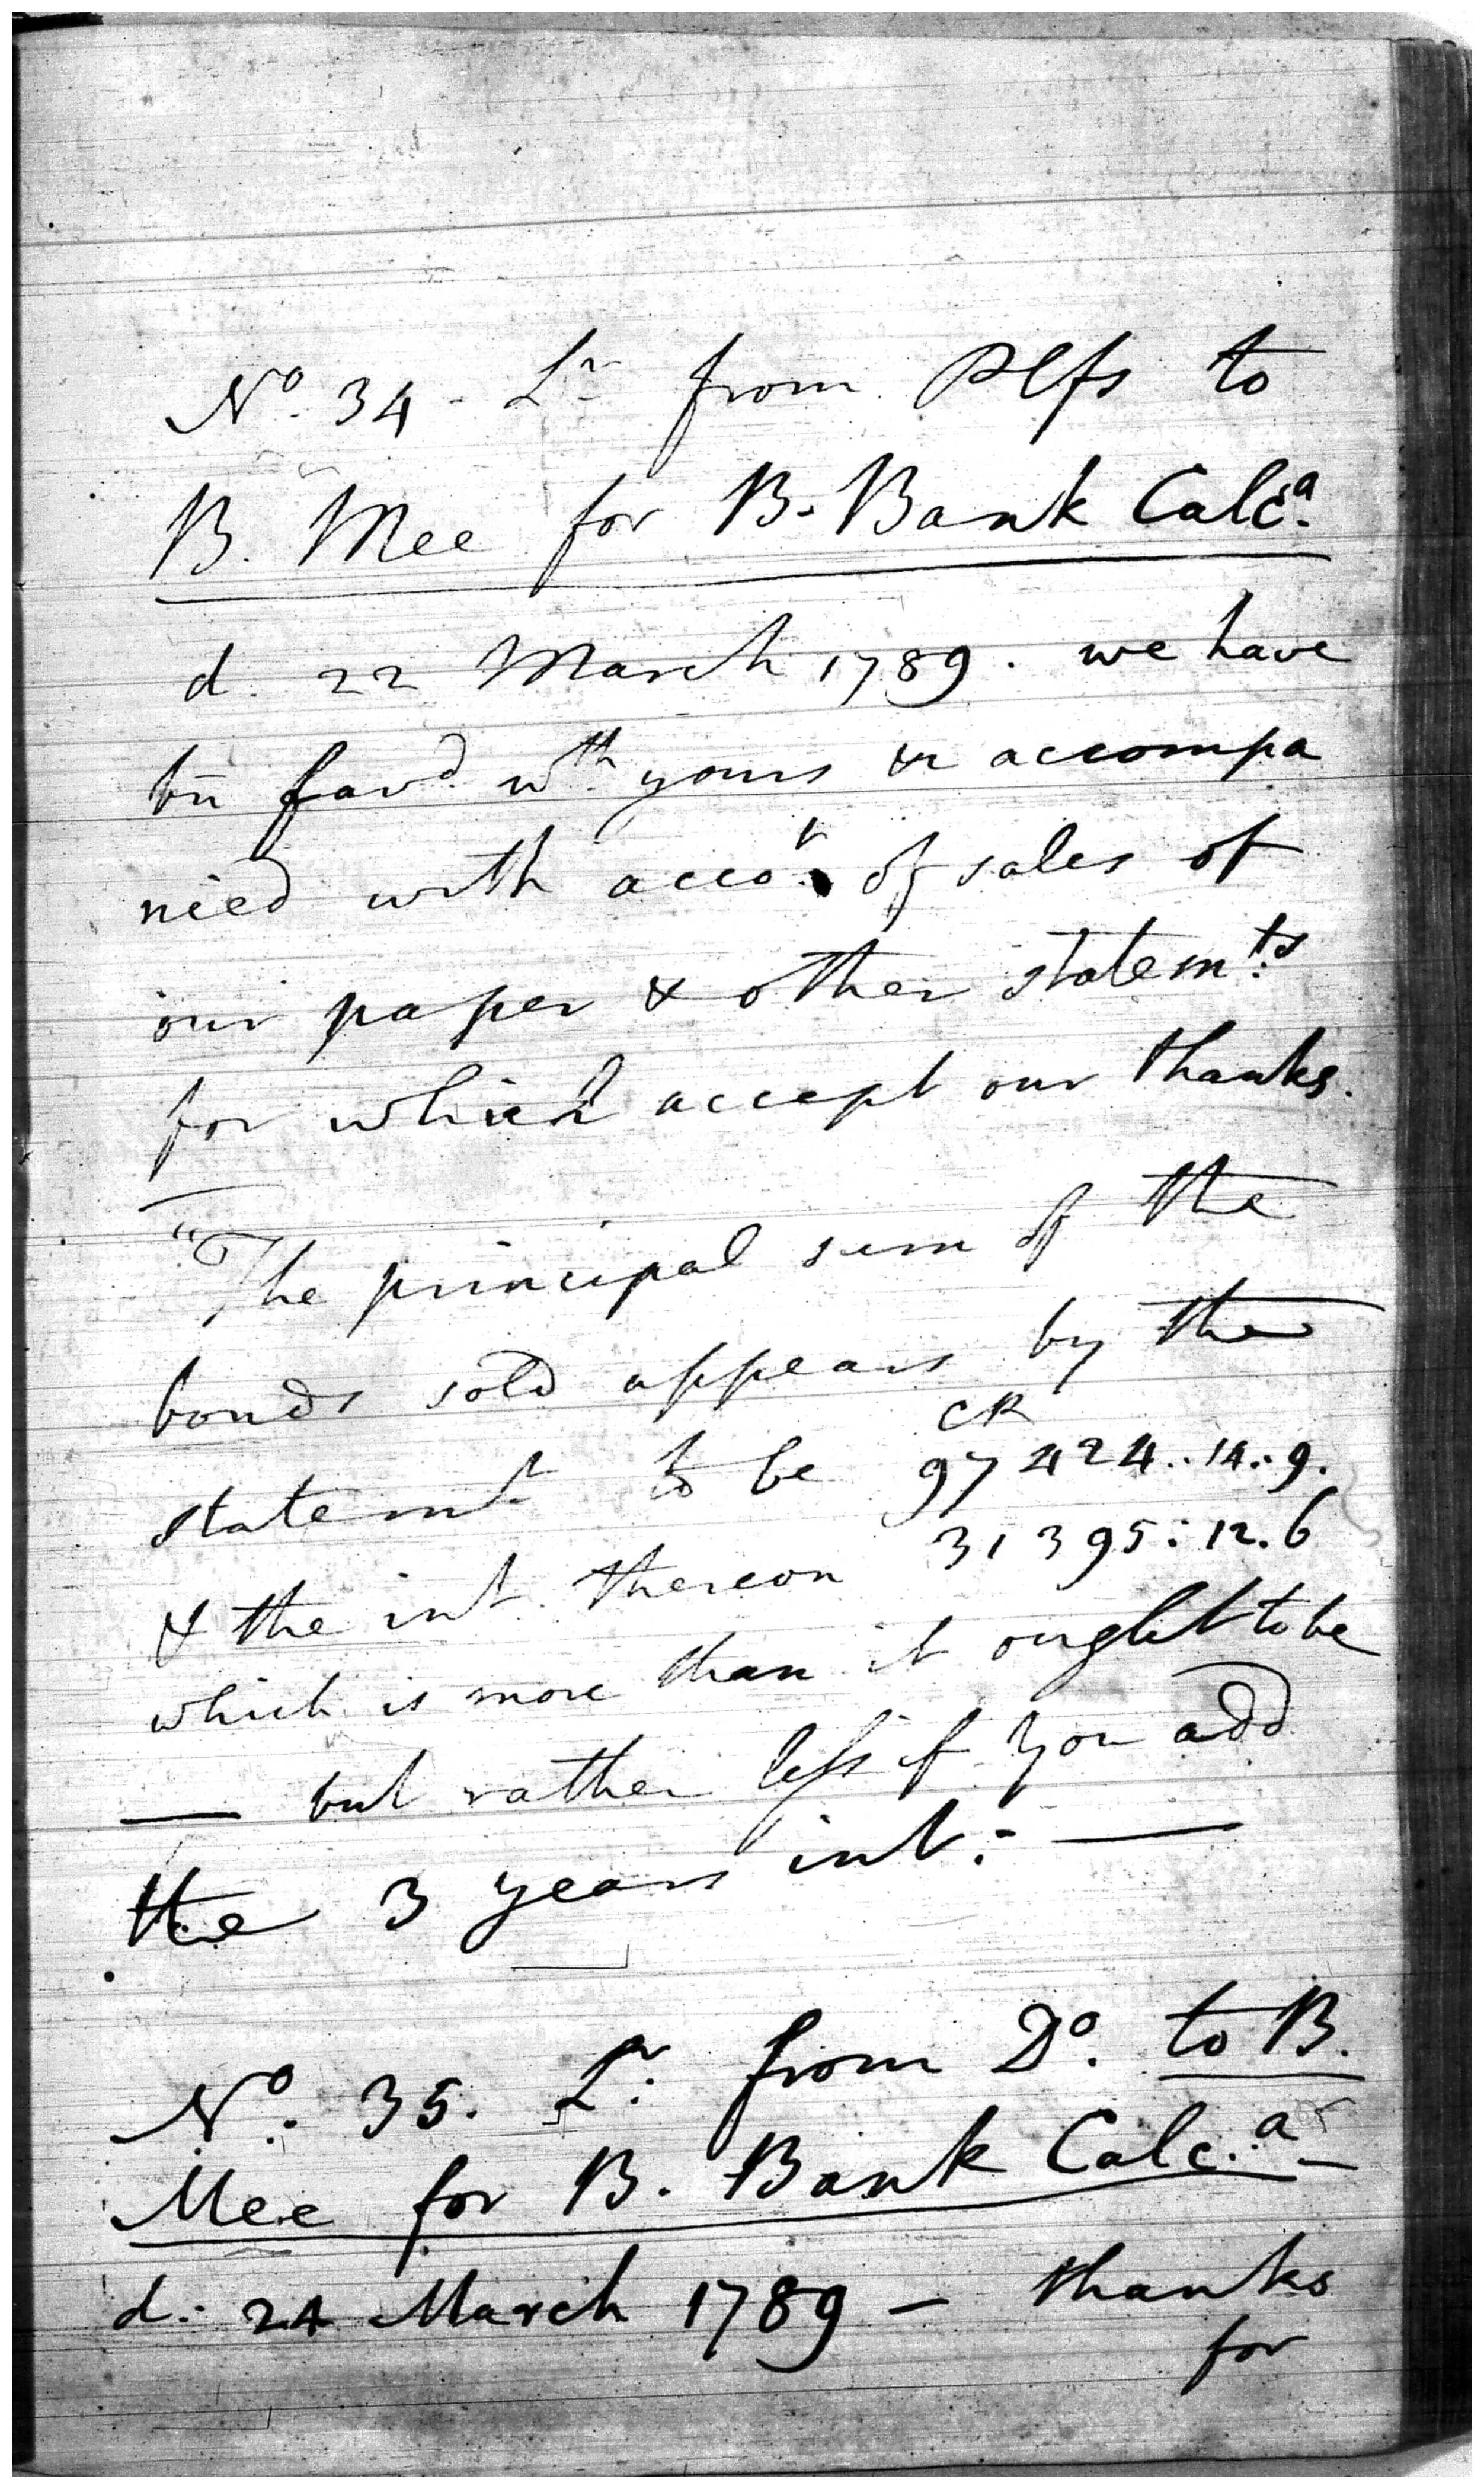 No. 34 - Lr from Plfs to
B. Mee for B. Bank Calca.
d. 22 March 1789. we have
bn favd. wth. yours & accompa
nied with accot. of sales of
our paper & other statemts.
for which accept our thanks.
"The principal sum of the
bonds sold appears by the
CR
statemt to be 97424..14..9.
& the int. thereon 31395:12.6
which is more than it ought to be
— but rather less if you add
the 3 years int: —
No. 35. Lr. from Do. to B.
Mee for B. Bank Calc.a -
d: 24 March 1789 - thanks
for